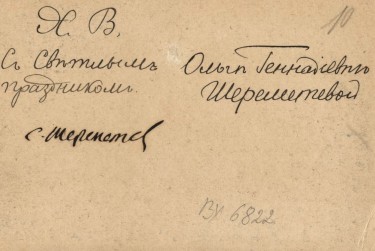 Х. В.
Съ Свѣтлымъ
праздникомъ.
Ольгѣ Геннадіевнѣ
Шереметевой
С. Шереметев
10
ВХ 6822